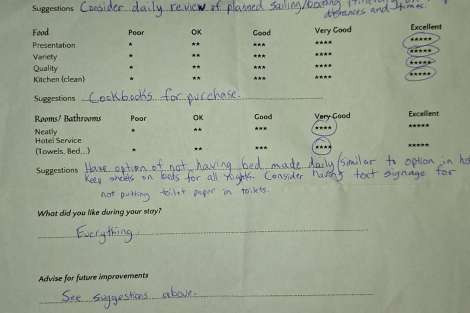 Suggestions Consider daily review of planned sailing/boating itinerary
distances and times.
Food Poor OK Good Very Good Excellent
Presentation * ** *** **** *****
Variety * ** *** **** *****
Quality * ** *** **** *****
Kitchen (clean) * ** *** **** *****
Suggestions Cookbooks for purchase.
Rooms/ Bathrooms Poor OK Good Very Good Excellent
Neatly * ** *** **** *****
Hotel Service
(Towels, Bed...) * ** *** **** *****
Suggestions Have option of not having bed made daily (similar to option in
Keep sheets on beds for all nights. Consider having text signage for
not putting toilet paper in toilets.
What did you like during your stay?
Everything.
Advise for future improvements
See suggestions above.